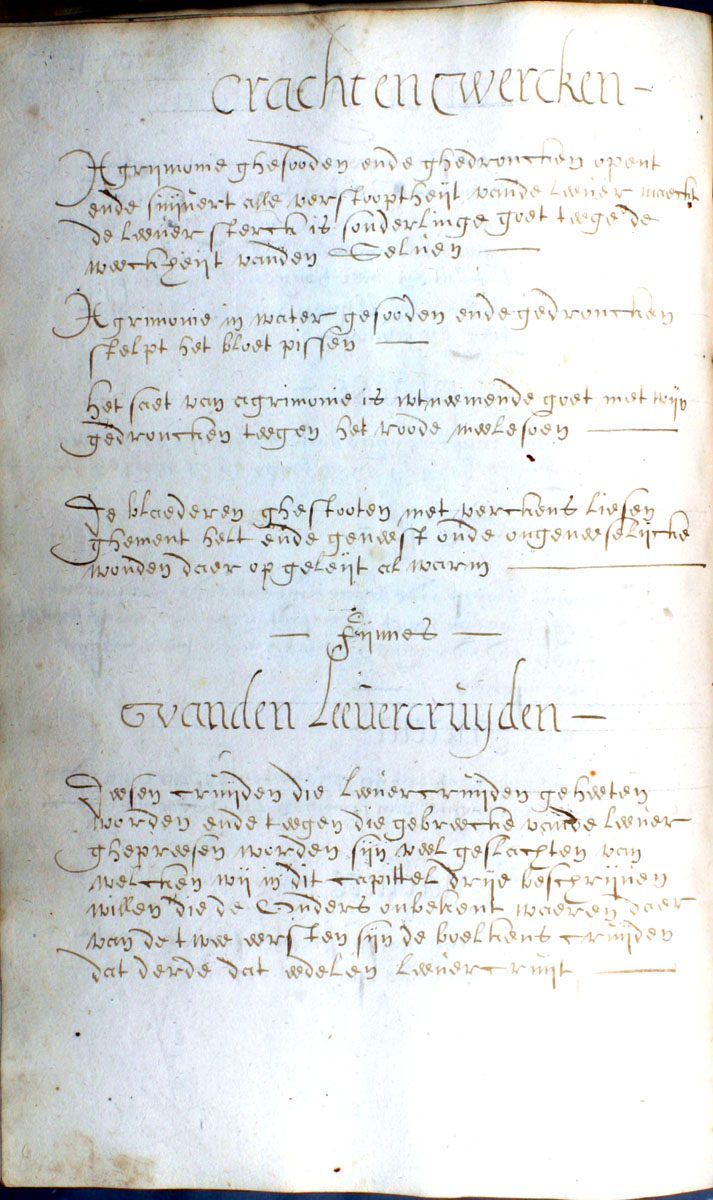 Cracht en Cwercken —
Agrijmonie ghesooden ende ghedroncken opent
ende suijvert alle verstooptheijt vande leever maeckt
de leever sterck is sonderlinge goet teege de
weeckheijt vanden Selven —
Agrimonie in water gesooden ende gedroncken
stelpt het bloet pissen —
het saet van agrimonie is wtneemende goet met wijn
gedroncken teegen het roode meelesoen —
De blaederen ghestooten met verckens liesen
ghement helt ende geneest oude ongeneeselijcke
wonden daer op geleijt al warm —
— Fijnnes —
Vanden Leevercruijden —
Deesen cruijden die leevercruijden geheeten
worden ende teegen die gebreecke vande leever
ghepreesen worden sijn veel geslachten van
welcken wij in dit capittel drije beschrijven
willen die de Ouders onbekent waeren daer
van de twee eersten sijn de boelkens cruijden
dat derde dat edelen leevercruijt —